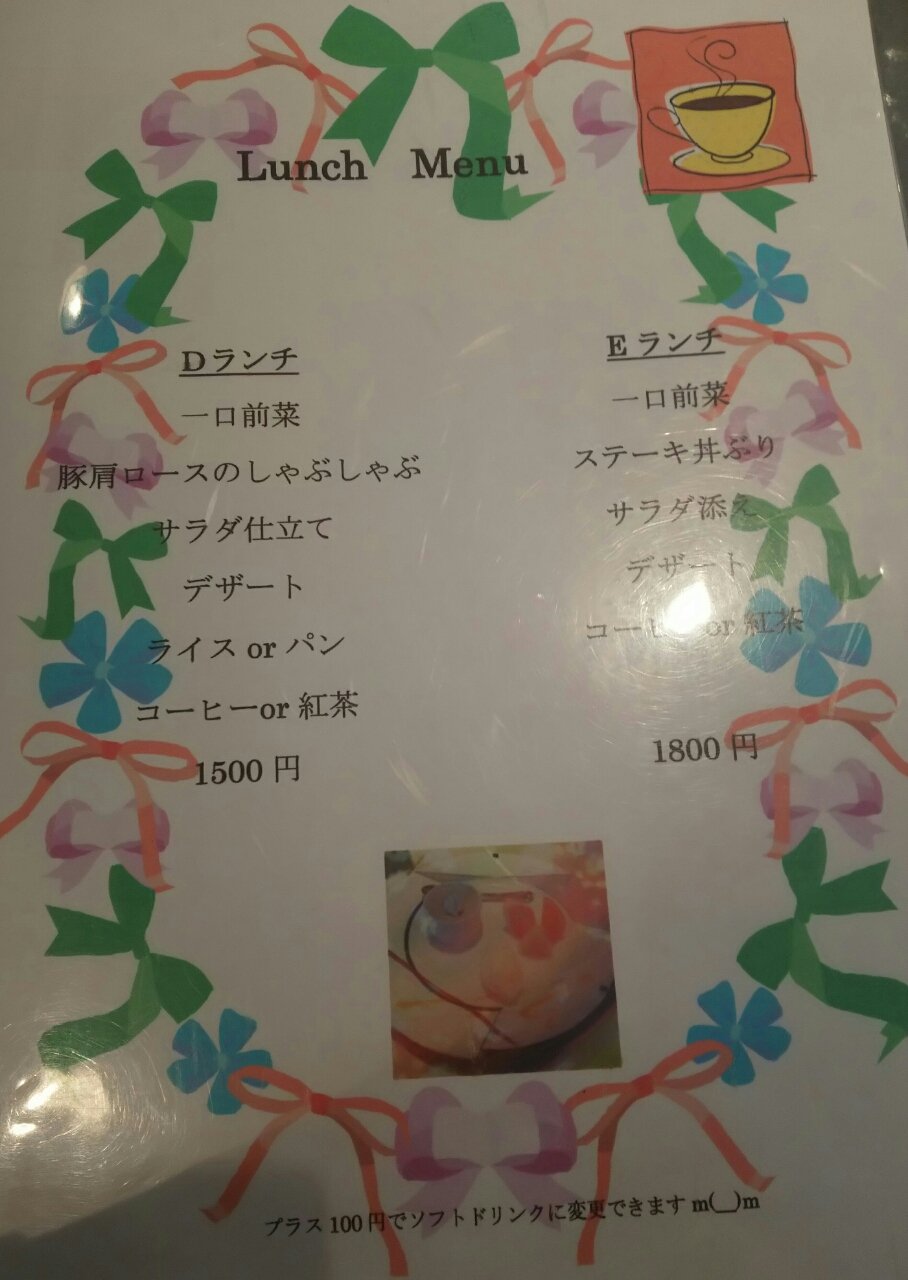 Lunch Menu
Dランチ
一口前菜
豚肩ロースのしゃぶしゃぶ
サラダ仕立て
デザート
ライス or パン
コーヒーor 紅茶
1500 円
E ランチ
一口前菜
ステーキ丼ぶり
サラダ添え
デザート
コーヒーor 紅茶
1800 円
プラス 100 円でソフトドリンクに変更できます m(__)m